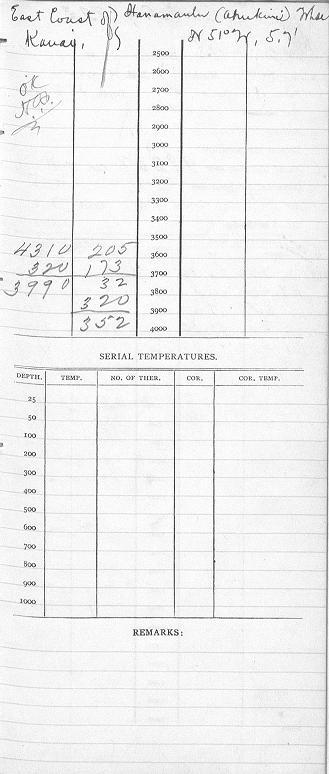 East Coast of Hanamaulu (Ahukini) Whar
Kauai, N 51° W, 5.7'
OK
2500
2600
2700
2800
2900
3000
3100
3200
3300
3400
3500
4310 205 3600
320 173 3700
3990 32 3800
320 3900
352 4000
SERIAL TEMPERATURES.
DEPTH. TEMP. NO. OF THER. COR. COR. TEMP.
25
50
100
200
300
400
500
600
700
800
900
1000
REMARKS: